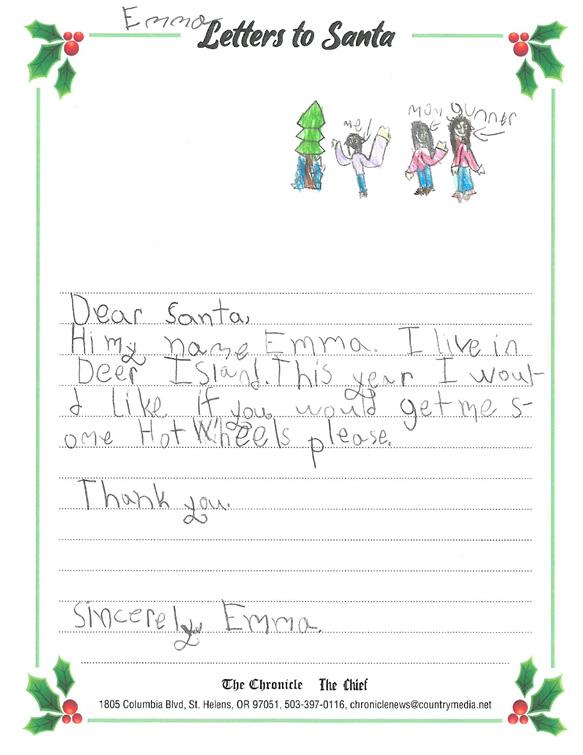 Emma
Letters to Santa
me!
mom Gunner
Dear Santa,
Hi my name Emma. I live in
Deer Island. This year I woul-
d like if you would get me s-
ome Hot Wheels please.
Thank you.
Sincerely Emma.
The Chronicle The Chief
1805 Columbia Blvd, St. Helens, OR 97051, 503-397-0116, chroniclenews@countrymedia.net